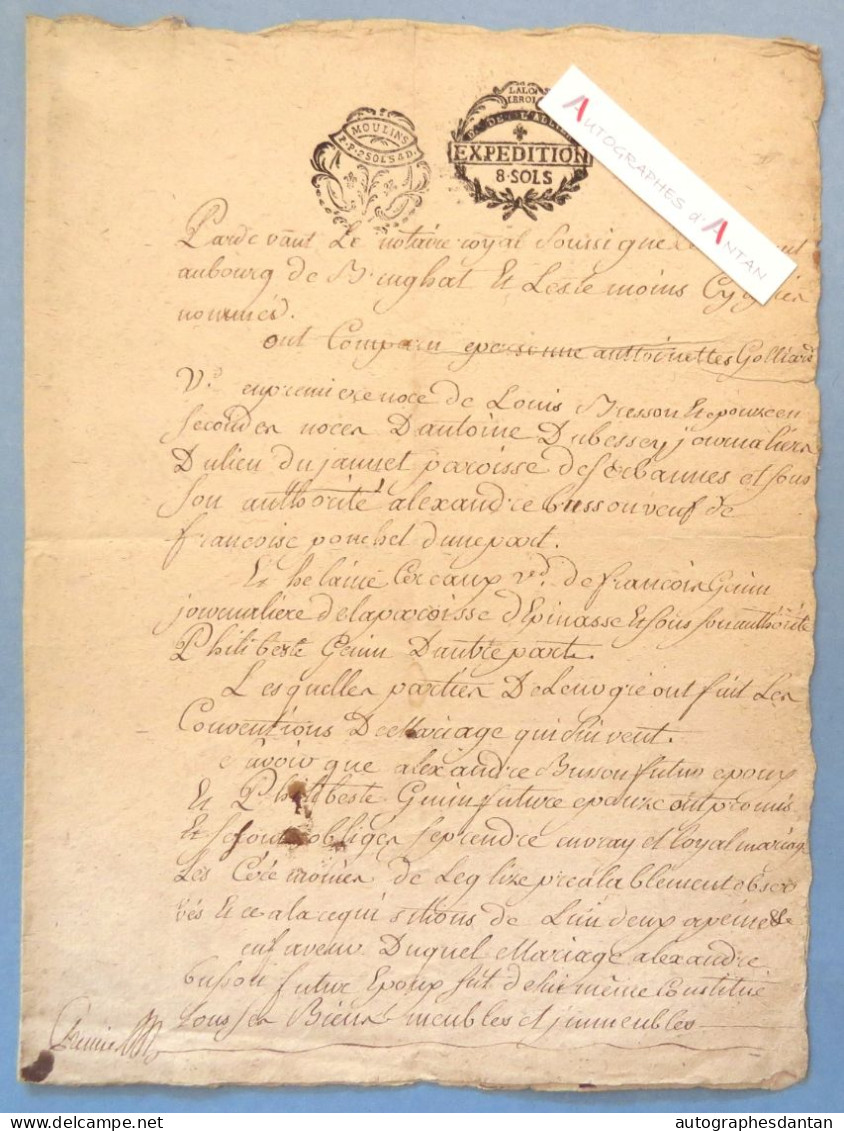 MOULINS
2 SOLS 8 D.
LALOY
LEROI
EXPEDITION
8 SOLS
AUTOGRAPHES d'ANTAN
Pardevant Le notaire royal Soussigné
aubourg de et Les te moins Cy
nommés.
ont Comparu epersonne anthoinettes Golliard
Ve. enpremiere noce de Louis Bresson Et epouze en
secondes noces Dantoine Dubessey journaliers
Dulieu du jaunet paroisse de Sorbannes et sous
son authorité alexandre busson veuf de
francoise ponchet dune part.
Et helaine Cereaux ve. de francois Genin
journaliere delaparoisse d'Epinasse Et sous son authorité
Philiberte Genin Dautre part.
Lesquelles parties De Leur gré ont fait Les
Conventions De Mariage qui suivent.
savoir que alexandre Busson futur epoux
Et Philiberte Genin future epouze ont promis
Et se sont obligés se prendre en vray et loyal mariage
Les Céré monies de Leglize prealablement obser
vés Et ce a la requi sitions de Lun deux a peine &c
en faveur Duquel Mariage alexandre
busson futur Epoux sest de lui même Constitué
tous ses Biens meubles et jmmeubles
autographesdantan
www.delcampe.net